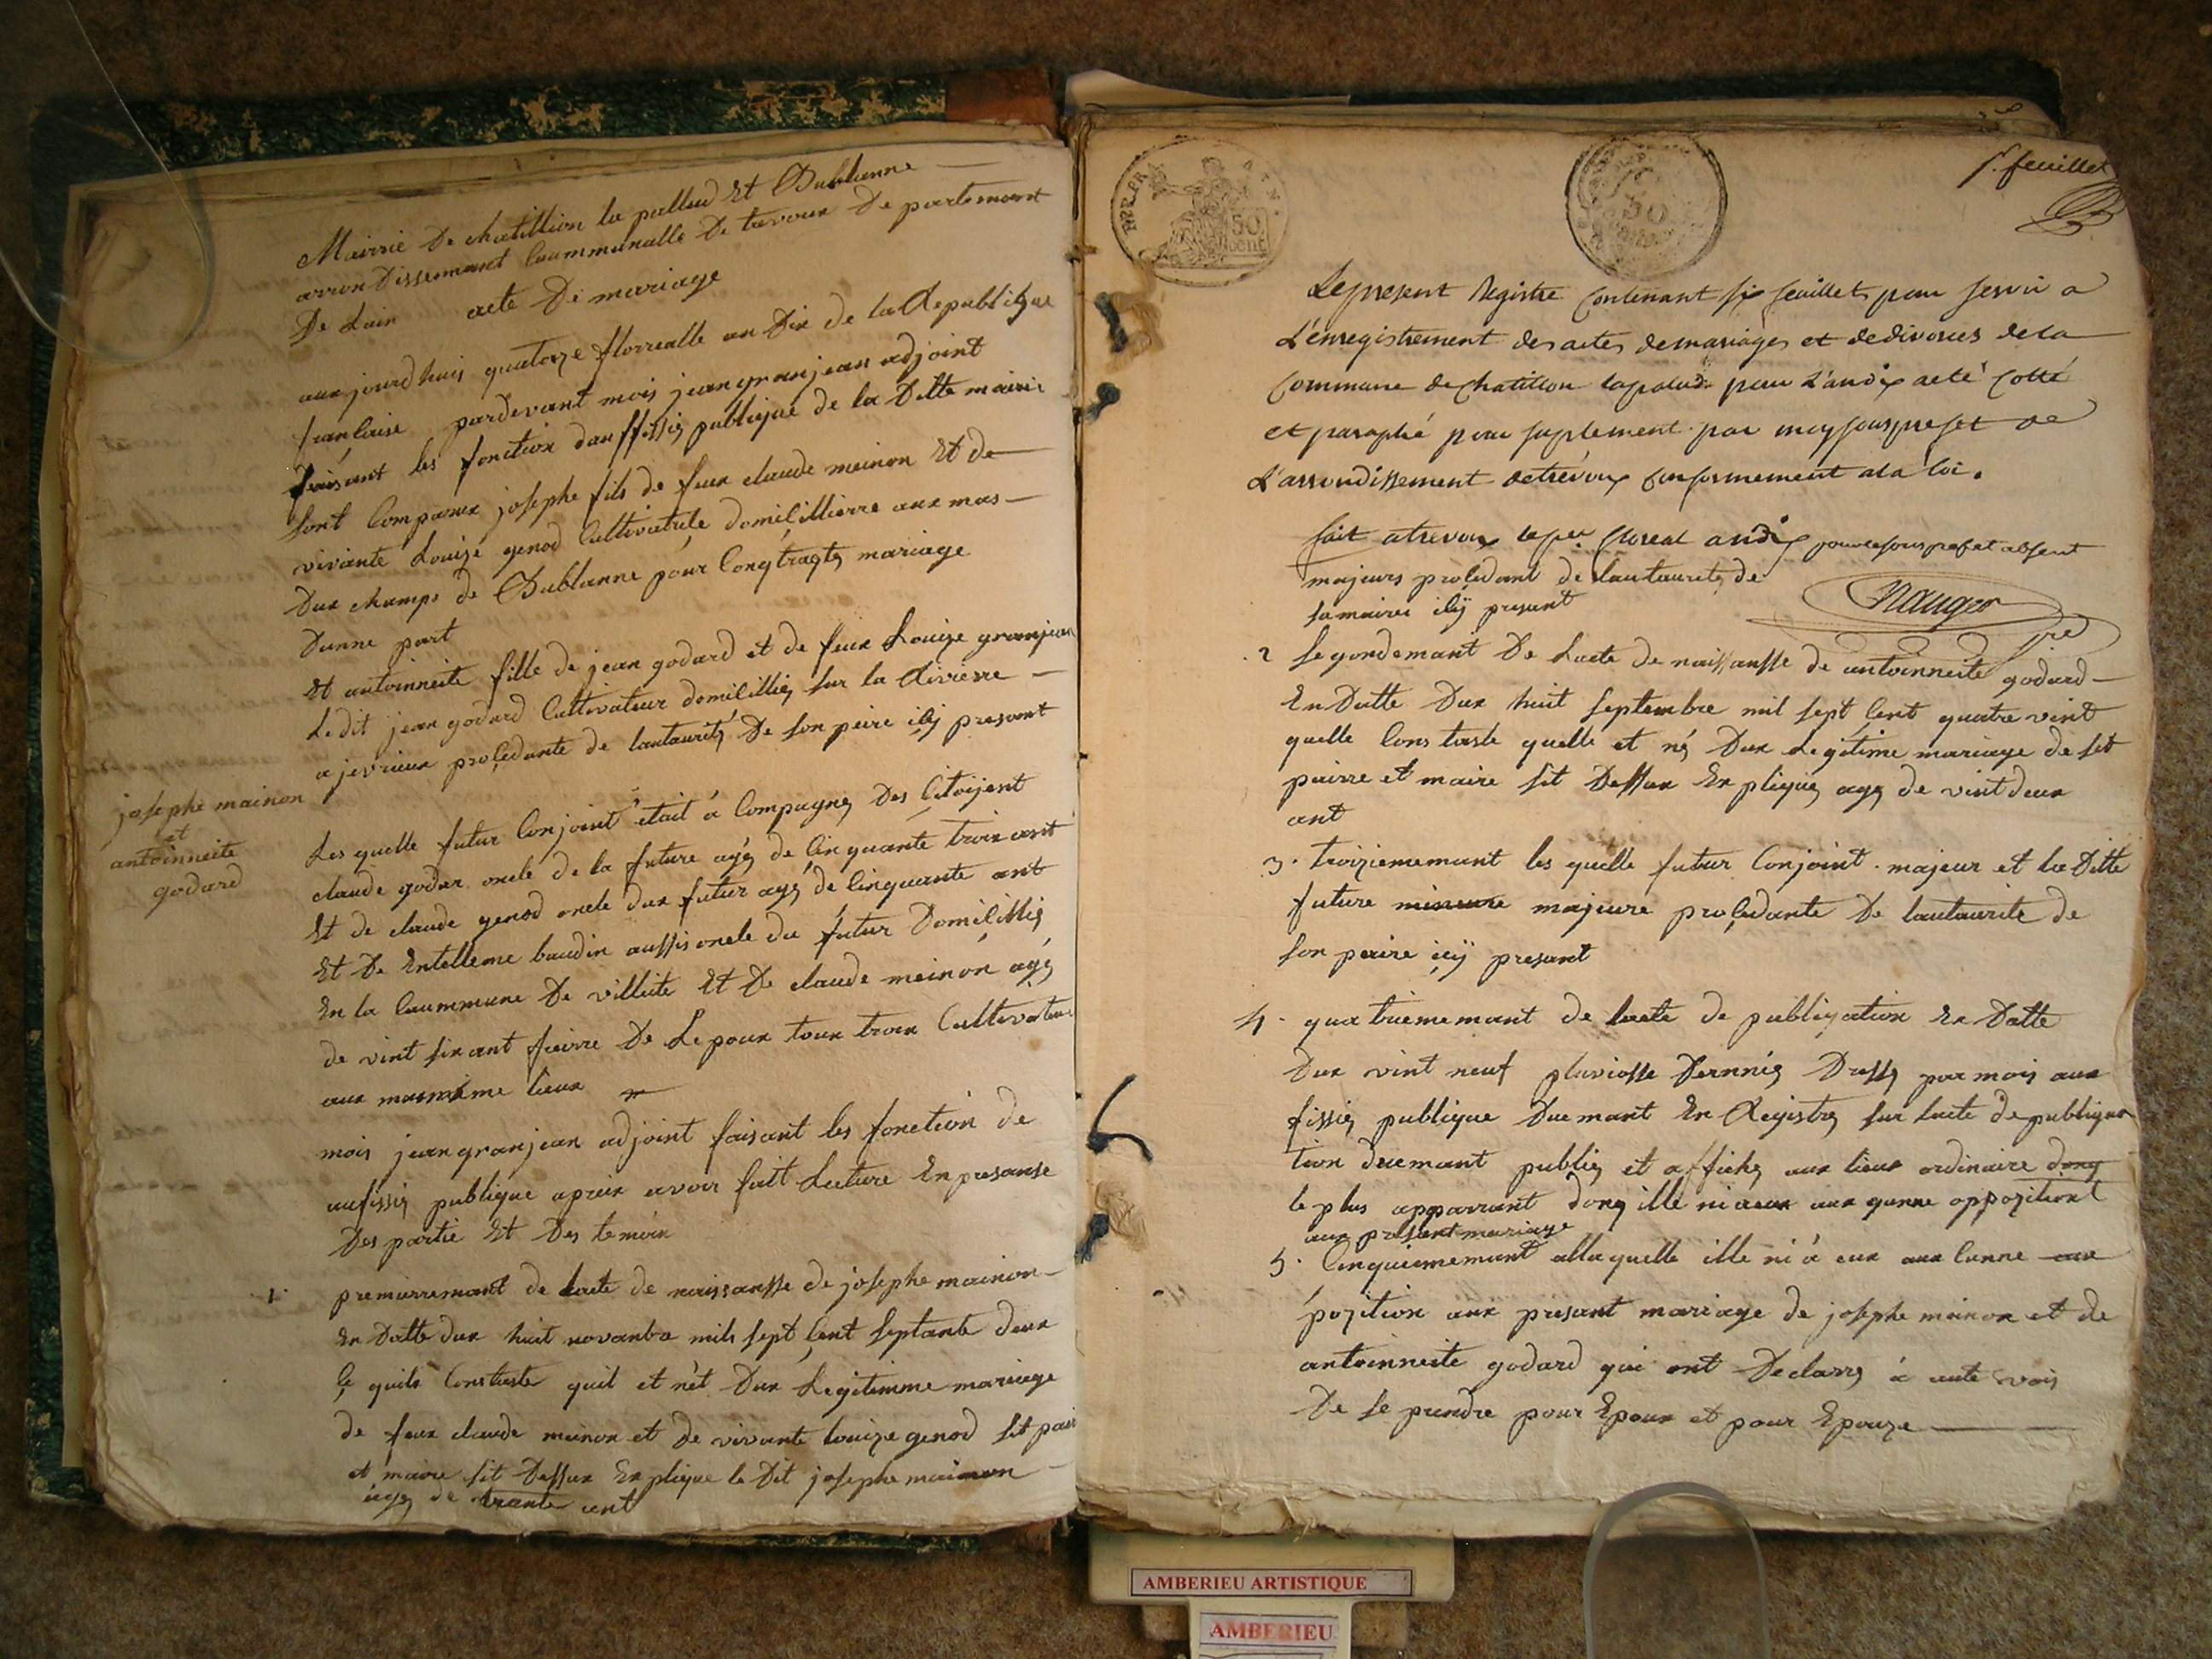 Mairrie De chatillion la pallud Et Dublanne
arron Dissemant Caummunalle De travoux De partemant
De Lain acte De mariage
aux jourd huis quatorze florrealle an Dix de la Republique
francaise pardevant mois jean granjean adjoint
faisant les fonction dauffissiez publique de la Ditte mairie
sont Comparux josephe fils de feux claude meinon Et de
vivante Louize genod Cultivatrise domicillierre aux mas
Dux champs de Dublanne pour Congtragtez mariage
Dunne part
Et antoinneite fille de jean godard et de feux Louize granjean
Ledit jean godard Cultivateur domicilliez sur la Rivierre
a jevrieux procedante de lautauritez De son peire icij presant
josephe mainon
et
antoinneite
godard
Les quelle futur Conjoint était á Compagnez Des Citoijent
claude godar oncle de la future agéz de Cinquante troix ant
Et de claude genod oncle dux futur agez de Cinquante ant
Et De Entelleme baudin aussis oncle du futur Domicilliez
En la Caummune De villeite Et De claude meinon agéz
de vint six ant freirre De Lepoux toux troix Cultivateur
aux mesmême lieux
mois jean granjean adjoint faisant les fonction de
aufissiez publique apreix avoir fait Lecture En presanse
Des partie Et Des temoin
1. premierremant de lacte de naissansse de josephe mainon
En Datte dux huit novanbre mils sept Cent septante deux
le quils Constaste quil et nét Dux Legitimme mariage
de feux claude meinon et de vivante louize genod sit pair
et maire sit Dessux Explique le Dit josephe mainon
agez de trante ant
1r. feuillet
REP. FRA
50
CENT
50
Le present Registre Contenant six feuillets pour servir a
L'enregistrement des actes de mariages et de divorces de la
Commune de chatillon la palud pour L'an dix a eté Cotté
et paraphé pour suplement par moy souspreset de
L'arrondissement de trévoux Conformement a la loi.
fait a trevoux le 1er floreal an dix pour le sous prefet absent
majeurs procedant de lautauritez de
sa mairre icij presant
Nauger
2 Segondemant De Lacte de naissansse de antoinneite godard
En Datte Dux huit septembre mil sept Cent quatre vint
quelle Constaste quelle et néz Dux Legitime mariage de set
pairre et maire sit Dessux Expliquez agez de vint deux
ant
3. troiziememant les quelle futur Conjoint majeur et la Ditte
future mineure majeure procedante De lautaurite de
son peire icij presant
4. quatriememant de lacte de publication En Datte
Dux vint neuf pluviosse Dernniez Dressez par mois aux
fissiez publique Duemant En Registrez sur lacte de publiqua
tion duemant publiez et affichez aux lieux ordinaire dong
le plus apparrant dong ille ni aeux aux qunne oppozitiont
aux presant mariage
5. Cinquiememant alla quelle ille ni á eux aux Cunne aux
pozition aux presant mariage de josephe meinon et de
antoinneite godard qui ont Declarez á aute vois
De se prendre pour Epoux et pour Epouze
AMBERIEU ARTISTIQUE
AMBERIEU